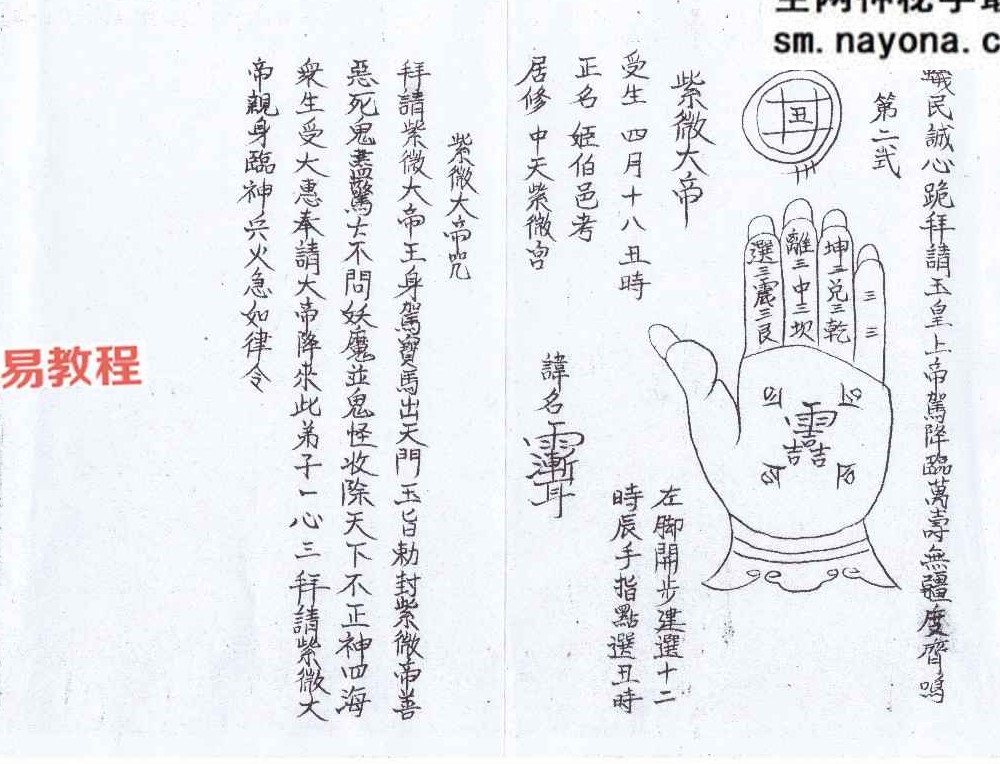 sm.nayona.c
易教程
民誠心跪拜請玉皇上帝駕降臨萬壽無疆度齊嗚
第二式
丑
選三震三艮
離三中三坎
坤三兌三乾
三三
吉吉
左腳開步建選十二
時辰手指點選丑時
紫微大帝
受生 四月十八丑時
正名 姬伯邑考
居修 中天紫微宮
諱名
紫微大帝咒
拜請紫微大帝王身駕寶馬出天門玉旨勅封紫微帝善
惡死鬼盡驚亡不問妖魔並鬼怪收除天下不正神四海
衆生受大惠奉請大帝降來此弟子一心三拜請紫微大
帝親身臨神兵火急如律令